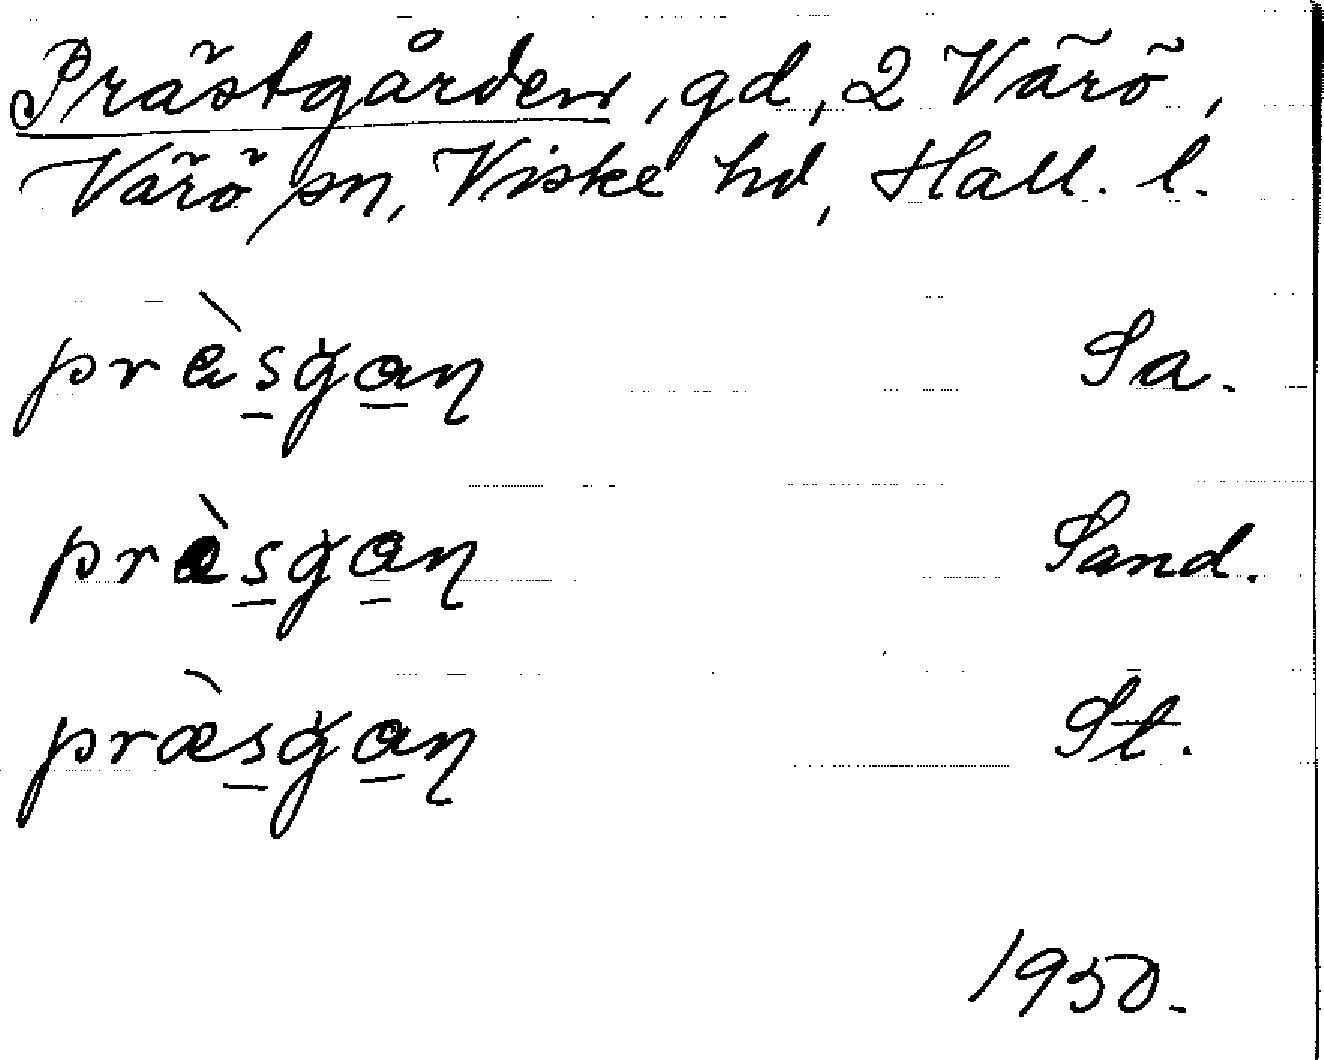 Prästgården, gd, 2 Värö,
Värö sn, Viske hd, Hall. l.
præ̀sgan Sa.
præ̀sgan Sand.
præ̀sgan St.
1950.